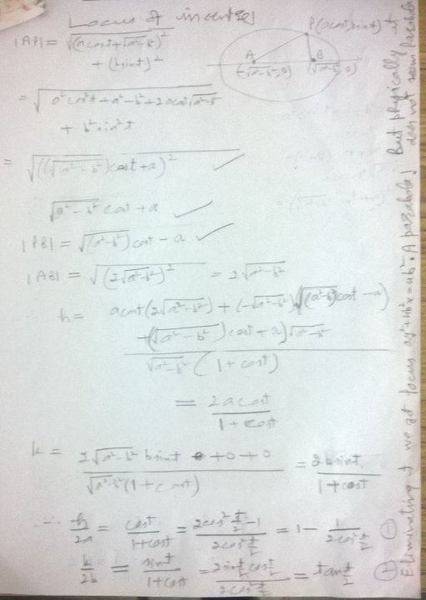 Locus of incentre
P(acost, bsint)
A B
(-√a²-b², 0) (√a²-b², 0)
|AP| = √(acost+√a²-b²)²
+ (bsint)²
= √a²cos²t + a²-b² + 2acost√a²-b²
+ b²sin²t
= √((√a²-b²)cost+a)² ✓
√a²-b² cost + a ✓
|PB| = √(a²-b²) cost - a ✓
|AB| = √(2√a²-b²)² = 2√a²-b²
h = acost(2√a²-b²) + (-√a²-b²)(√(a²-b²)cost - a)
+ (√(a²-b²)cost + a)√a²-b²
√a²-b² (1 + cost)
= 2acost
1 + cost
k = 2√a²-b² bsint + 0 + 0 = 2bsint
√a²-b² (1 + cost) 1 + cost
∴ h/2a = cost/1+cost = 2cos²t/2 - 1/2cos²t/2 = 1 - 1/2cos²t/2 ①
k/2b = sint/1+cost = 2sint/2 cost/2/2cos²t/2 = tant/2 ②
Eliminating t we get locus ay²+4b²x=4ab². A parabola! But physically it
does not seem parabola